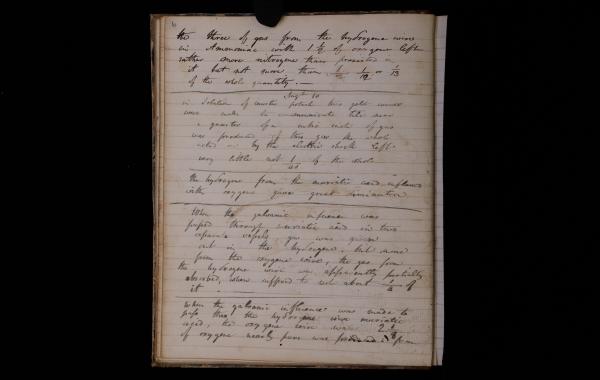 the three of gas from the hydrogene wire
in Ammoniac with 1 of oxygene left
rather more nitrogene than presented in
it but not more than 1/12 or 1/13
of the whole quantity. —
Augt 10
in solution of two gold wires
were made to communicate
a quarter of a cubic inch of gas
was produced of this gas the whole
acted on by the electric shock left
very little not of the whole
the hydrogene from the muriatic acid inflamed
with oxygene gives great diminution
When the galvanic influence was
passed through muriatic acid in two
separate vessels gas was given
out in the hydrogene. but none
from the oxygene wire, the gas from
the hydrogene wire was apparently partially
absorbed, when suffered to rest about of
it
When the galvanic influence was made to
pass thro the hydrogene wire muriatic
acid, the oxygene wire water
of oxygene nearly pure was produced from